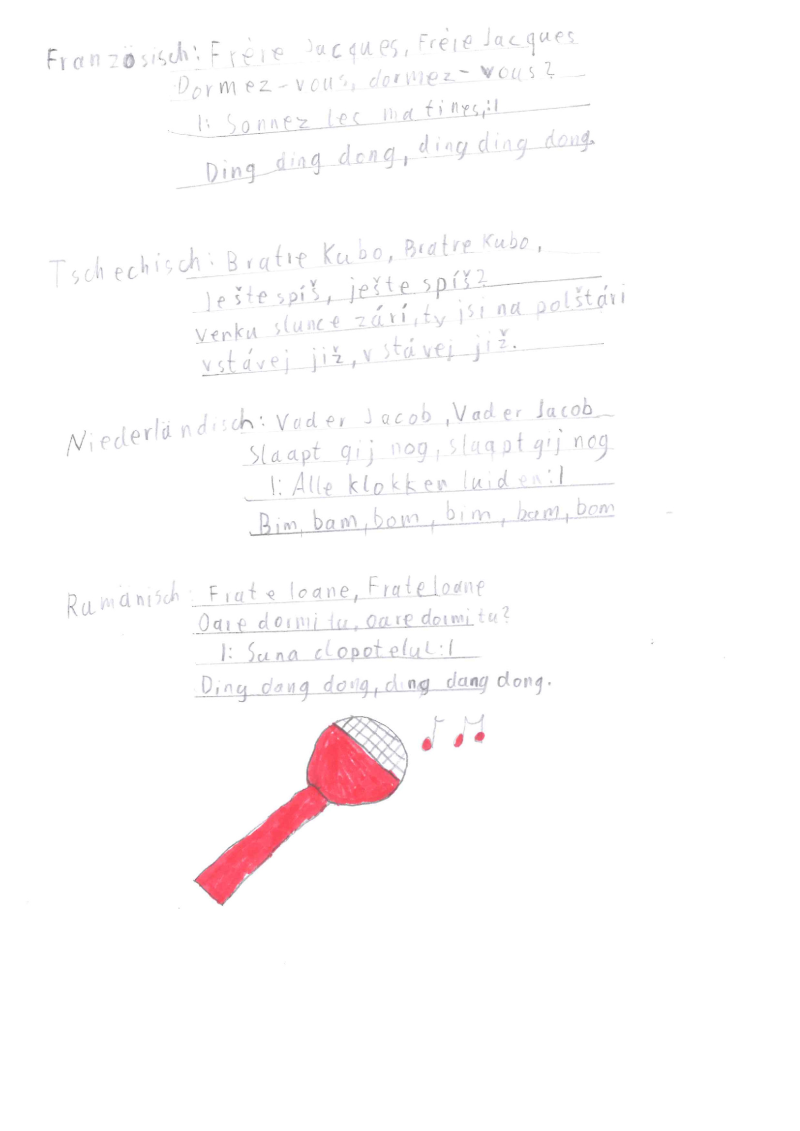 Französisch: Fréie Jacques, Fréie Jacques
Dormez-vous, dormez-vous?
|: Sonnez les matines,:|
Ding ding dong, ding ding dong.
Tschechisch: Bratre Kubo, Bratre Kubo,
Ješte spíš, ješte spíš?
venku slunce zárí, ty jsi na polštári
vstávej již, vstávej již.
Niederländisch: Vader Jacob, Vader Jacob
Slaapt gij nog, slaapt gij nog
|: Alle klokken luiden:|
Bim, bam, bom, bim, bam, bom
Rumänisch: Frate Ioane, Frate Ioane
Oare dormi tu, oare dormi tu?
|: Suna clopotelul:|
Ding dang dong, ding dang dong.